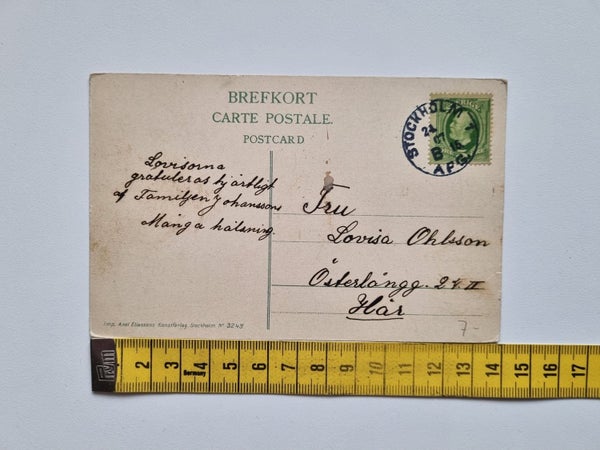 BREFKORT
CARTE POSTALE.
POSTCARD
STOCKHOLM
24
07
B 16
APG.
Lovisorna
gratuleras hjärtligt
af Familjen Johanssons
Många hälsning.
Fru
Lovisa Ohlsson
Österlångg. 24 II
Här
Imp. Axel Eliassons Konstförlag, Stockholm. No 3243
7-
2 3 4 5 6 7 8 9 10 11 12 13 14 15 16 17
Germany